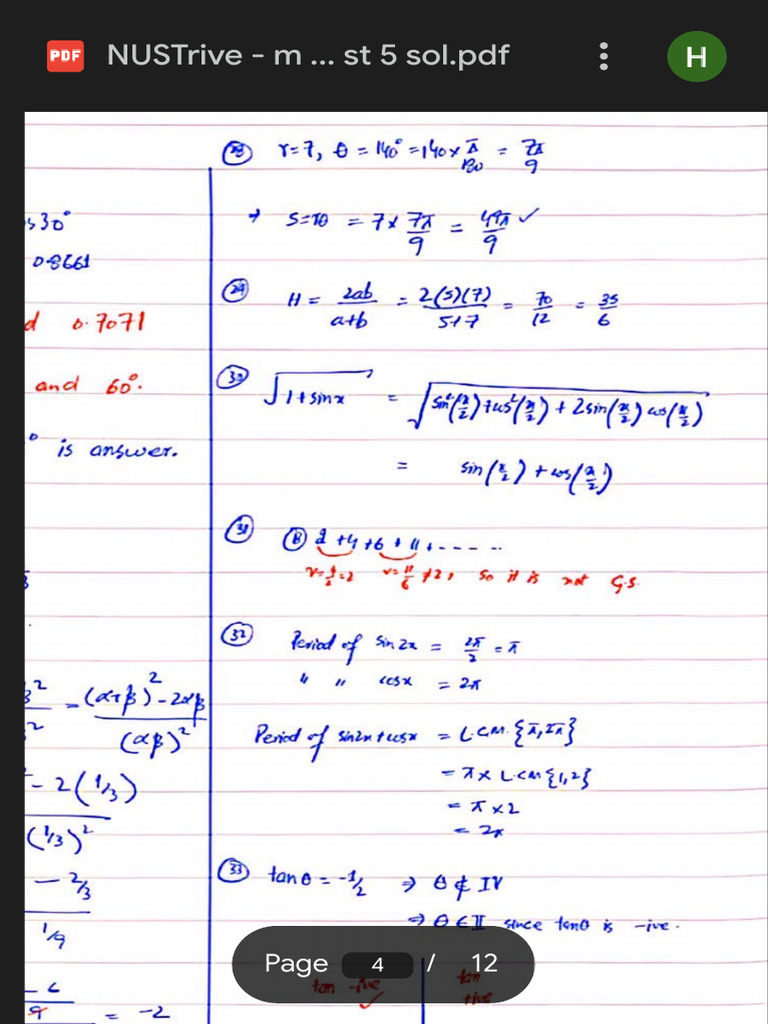 PDF NUSTrive - m ... st 5 sol.pdf H
s30°
0.8661
d 0.7071
and 60°.
° is answer.
β² = (α+β)² - 2αβ
(αβ)²
- 2(1/3)
(1/3)²
- 2/3
1/9
= -2
r=7, θ = 140° = 140 × π/180 = 7π/9
→ S=rθ = 7 × 7π/9 = 49π/9 ✓
(29) H = 2ab/a+b = 2(5)(7)/5+7 = 70/12 = 35/6
(30) √1+sinx = √sin²(x/2)+cos²(x/2) + 2sin(x/2) cos(x/2)
= sin(x/2) + cos(x/2)
(31) (B) 2 +4 +6 + 11 + - - - - ..
r=4/2=2 r=11/6 ≠2, so it is not G.S.
(32) Period of sin2x = 2π/2 = π
" " cosx = 2π
Period of sin2x+cosx = L.C.M. {π, 2π}
= π × L.CM {1,2}
= π × 2
= 2π
(33) tanθ = -1/2 ⇒ θ ∉ IV
⇒ θ ∈ II since tanθ is -ive.
Page 4 / 12
tan -ive ✓
tan
+ive